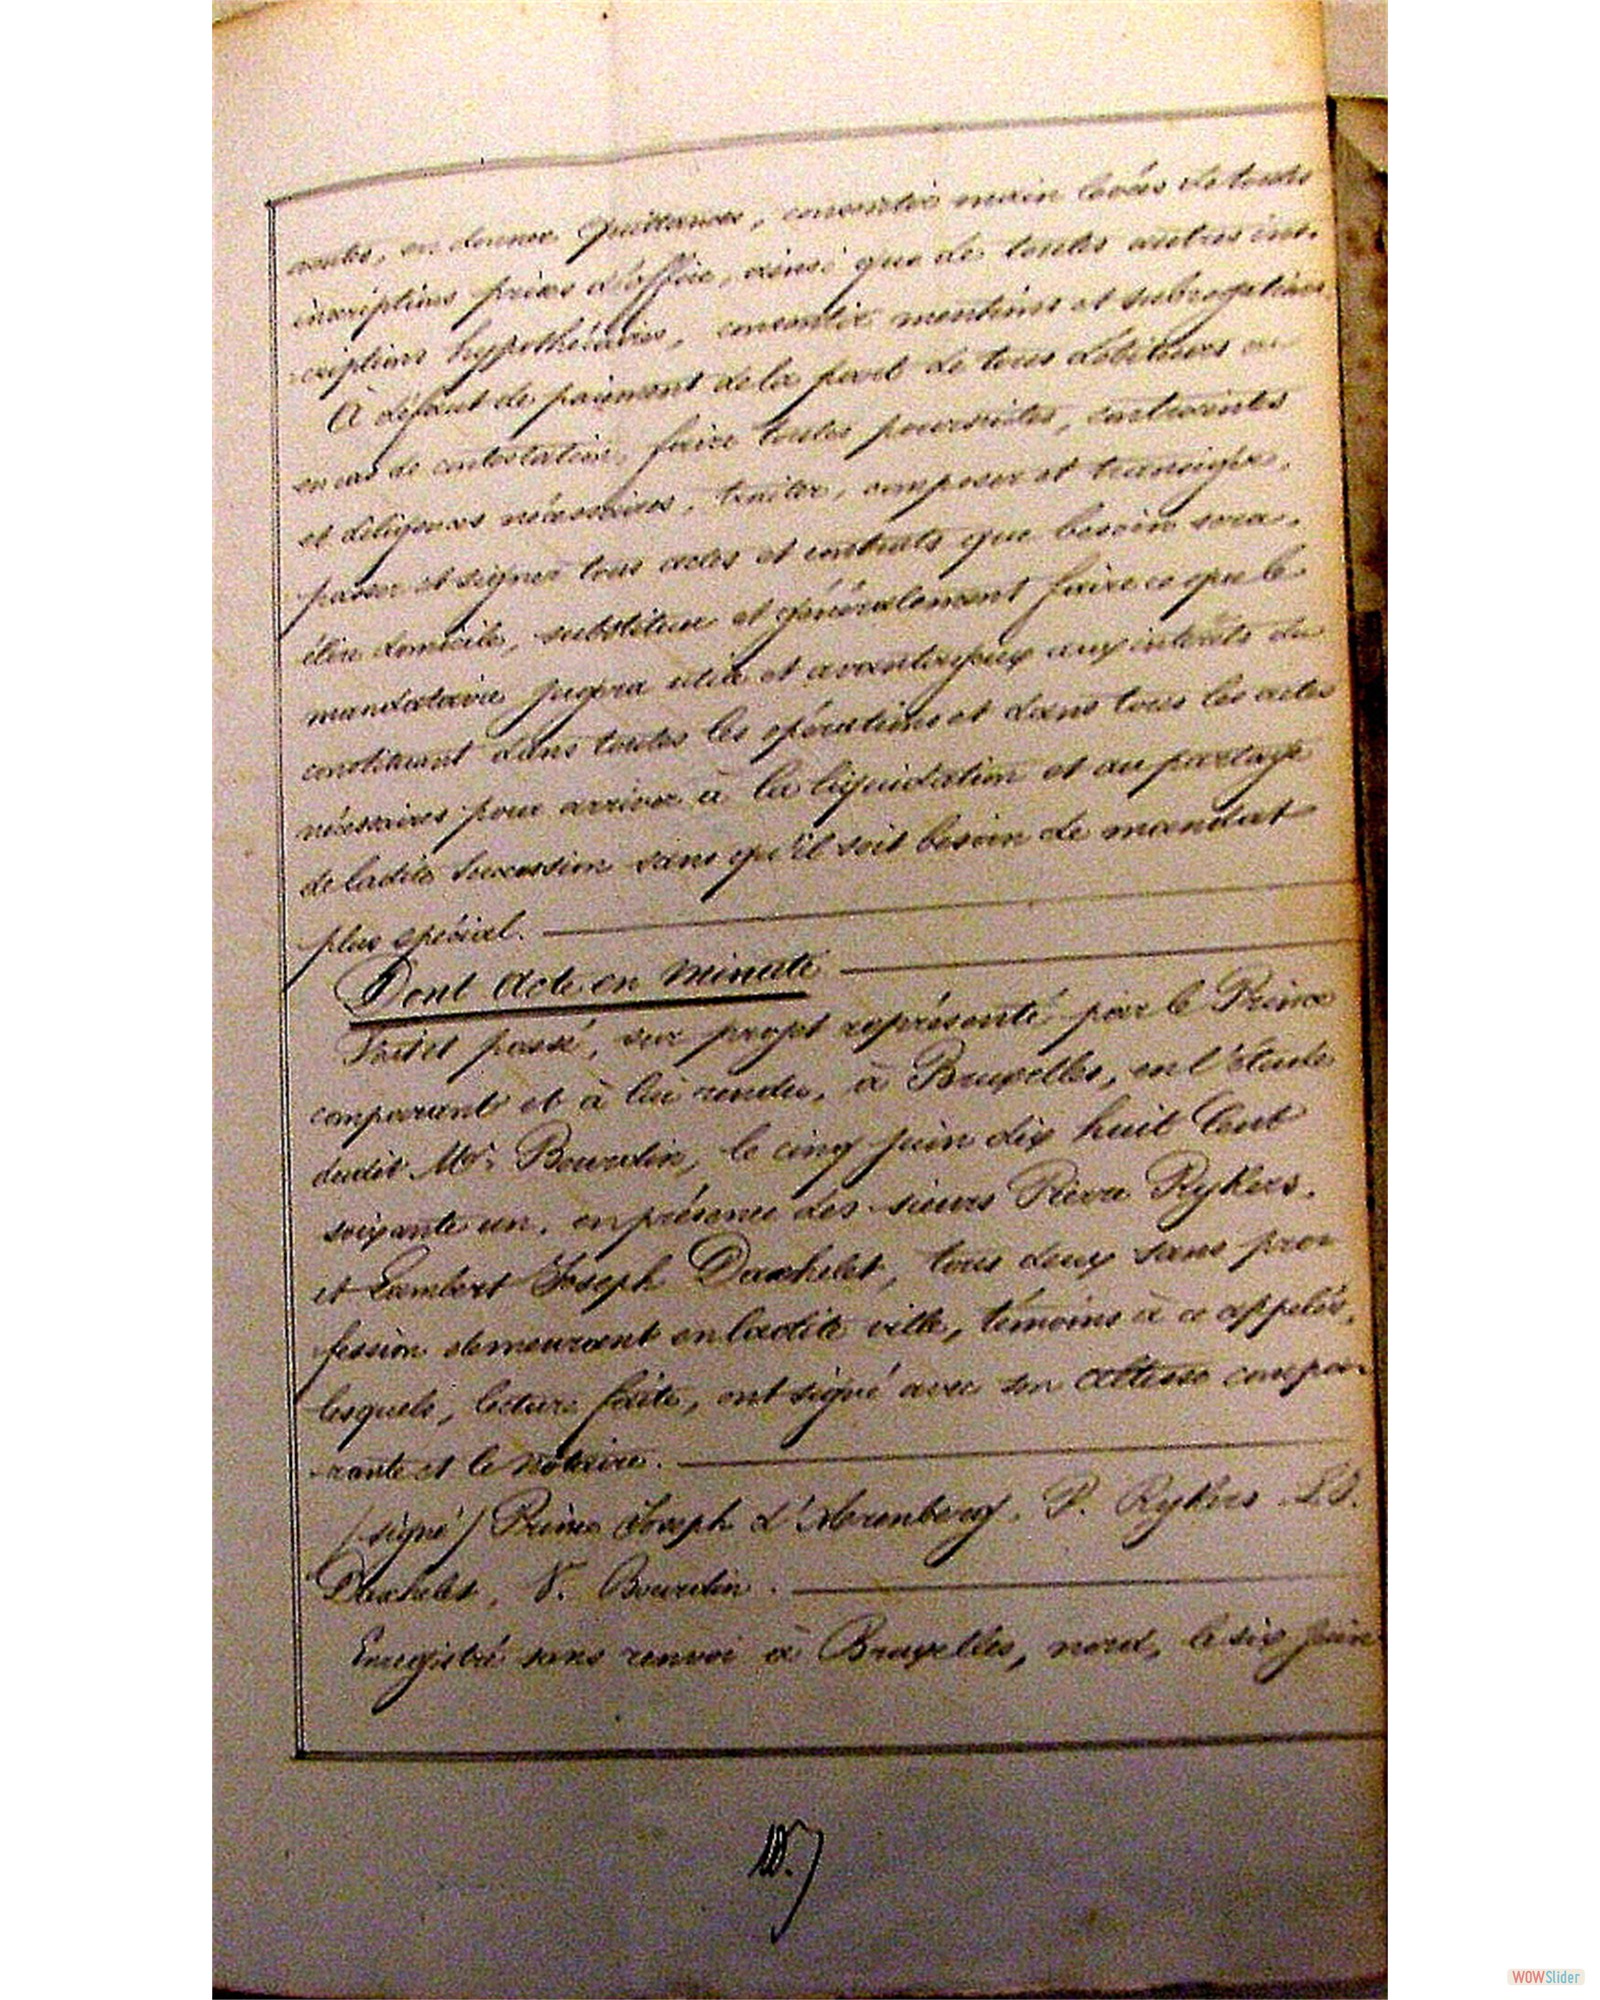 ventes, en donner quittances, consentir main levées de toutes
inscriptions prises d'office, ainsi que de toutes autres ins-
criptions hypothécaires, consentir mentions et subrogations
A défaut de paiement de la part de tous débiteurs ou
en cas de contestation, faire toutes poursuites, contraintes
et diligences nécessaires, traiter, composer et transiger,
passer et signer tous actes et contrats que besoin sera,
élire domicile, substituer et généralement faire ce que le
mandataire jugera utile et avantageux aux intérêts du
constituant dans toutes les opérations et dans tous les actes
nécessaires pour arriver à la liquidation et au partage
de ladite succession sans qu'il soit besoin de mandat
plus spécial.
Dont Acte en minute
Fait et passé, sur projet représenté par le Prince
comparant et à lui rendu, à Bruxelles, en l'étude
dudit Me. Bourdin, le cinq juin dix huit Cent
soixante un, en présence des sieurs Pierre Rykers,
et Lambert Joseph Daxhelet, tous deux sans pro-
fession demeurant en ladite ville, témoins à ce appelés,
lesquels, lecture faite, ont signé avec son Altesse compa-
rante et le notaire.
(signé) Prince Joseph d'Arenberg, P. Rykers L.J.
Daxhelet, V. Bourdin.
Enregistré sans renvoi à Bruxelles, nord, le six juin
WOWSlider